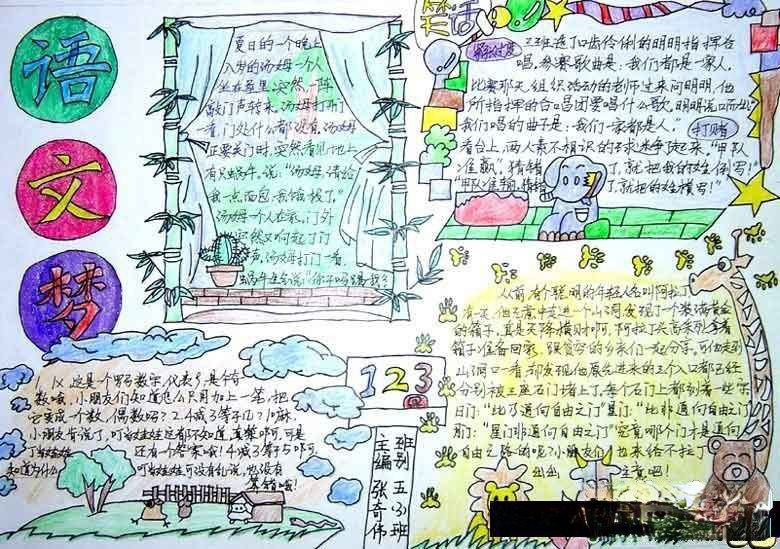 语
文
梦
夏日的一个晚上
八岁的汤姆一个人
坐在屋里,突然,一阵
敲门声传来,汤姆打开门
一看,门外什么都没有,汤姆
正要关门时,突然看见地上
有只蜗牛说:“汤姆,请给
我一点面包,我饿极了。”
汤姆一个人在家,门外
突然又响起了门
声,汤姆打开门一看,
笑话
王班选了口齿伶俐的明明指挥合
唱,参赛歌曲是:我们都是一家人。
比赛那天,组织活动的老师过来问明明,他
所指挥的合唱团要唱什么歌,明明说口而出
“我们唱的曲子是:我们一家都是人。”
打赌
看台上,两人素不相识的球迷争起来,“甲队
准赢”,猜错了,就把我的姓倒写!”
“甲队准输,猜错了,就把的姓横写!”
1 2 3
班别 五(3)班
主编 张奇伟
1.Ⅸ,这是一个罗马数字,代表9,是个奇
数哦,小朋友们知道怎么只用加上一笔,把
它变成个数,偶数吗?2.4减3等于几?1嘛,
小朋友肯说了,叮当娃娃这都不知道,羞羞咿可,可是
还有个答案哦!4减3等于5咿可,
叮当娃娃可没有乱说,也没有
算错哦!
知道为什么
人前,有个聪明的年轻人名叫阿拉丁,
有一天,他无意中走进一个山洞,发现了一个装满黄金
的箱子,真是天降横财啊,阿拉丁兴高采烈拿着
箱子准备回家,跟贫穷的乡亲们一起分享,可他走到
山洞口一看,却发现他原先进来的三个入口都已经
分别被三座石门堵上了,每个石门上都刻着一些字
日门:“比月道向自由之门”星门:“比非道向自由之门”
月门:“星门非道向自由之门”究竟哪个门才是道向
自由之路的呢?小朋友们也来给阿拉丁
出出主意吧!